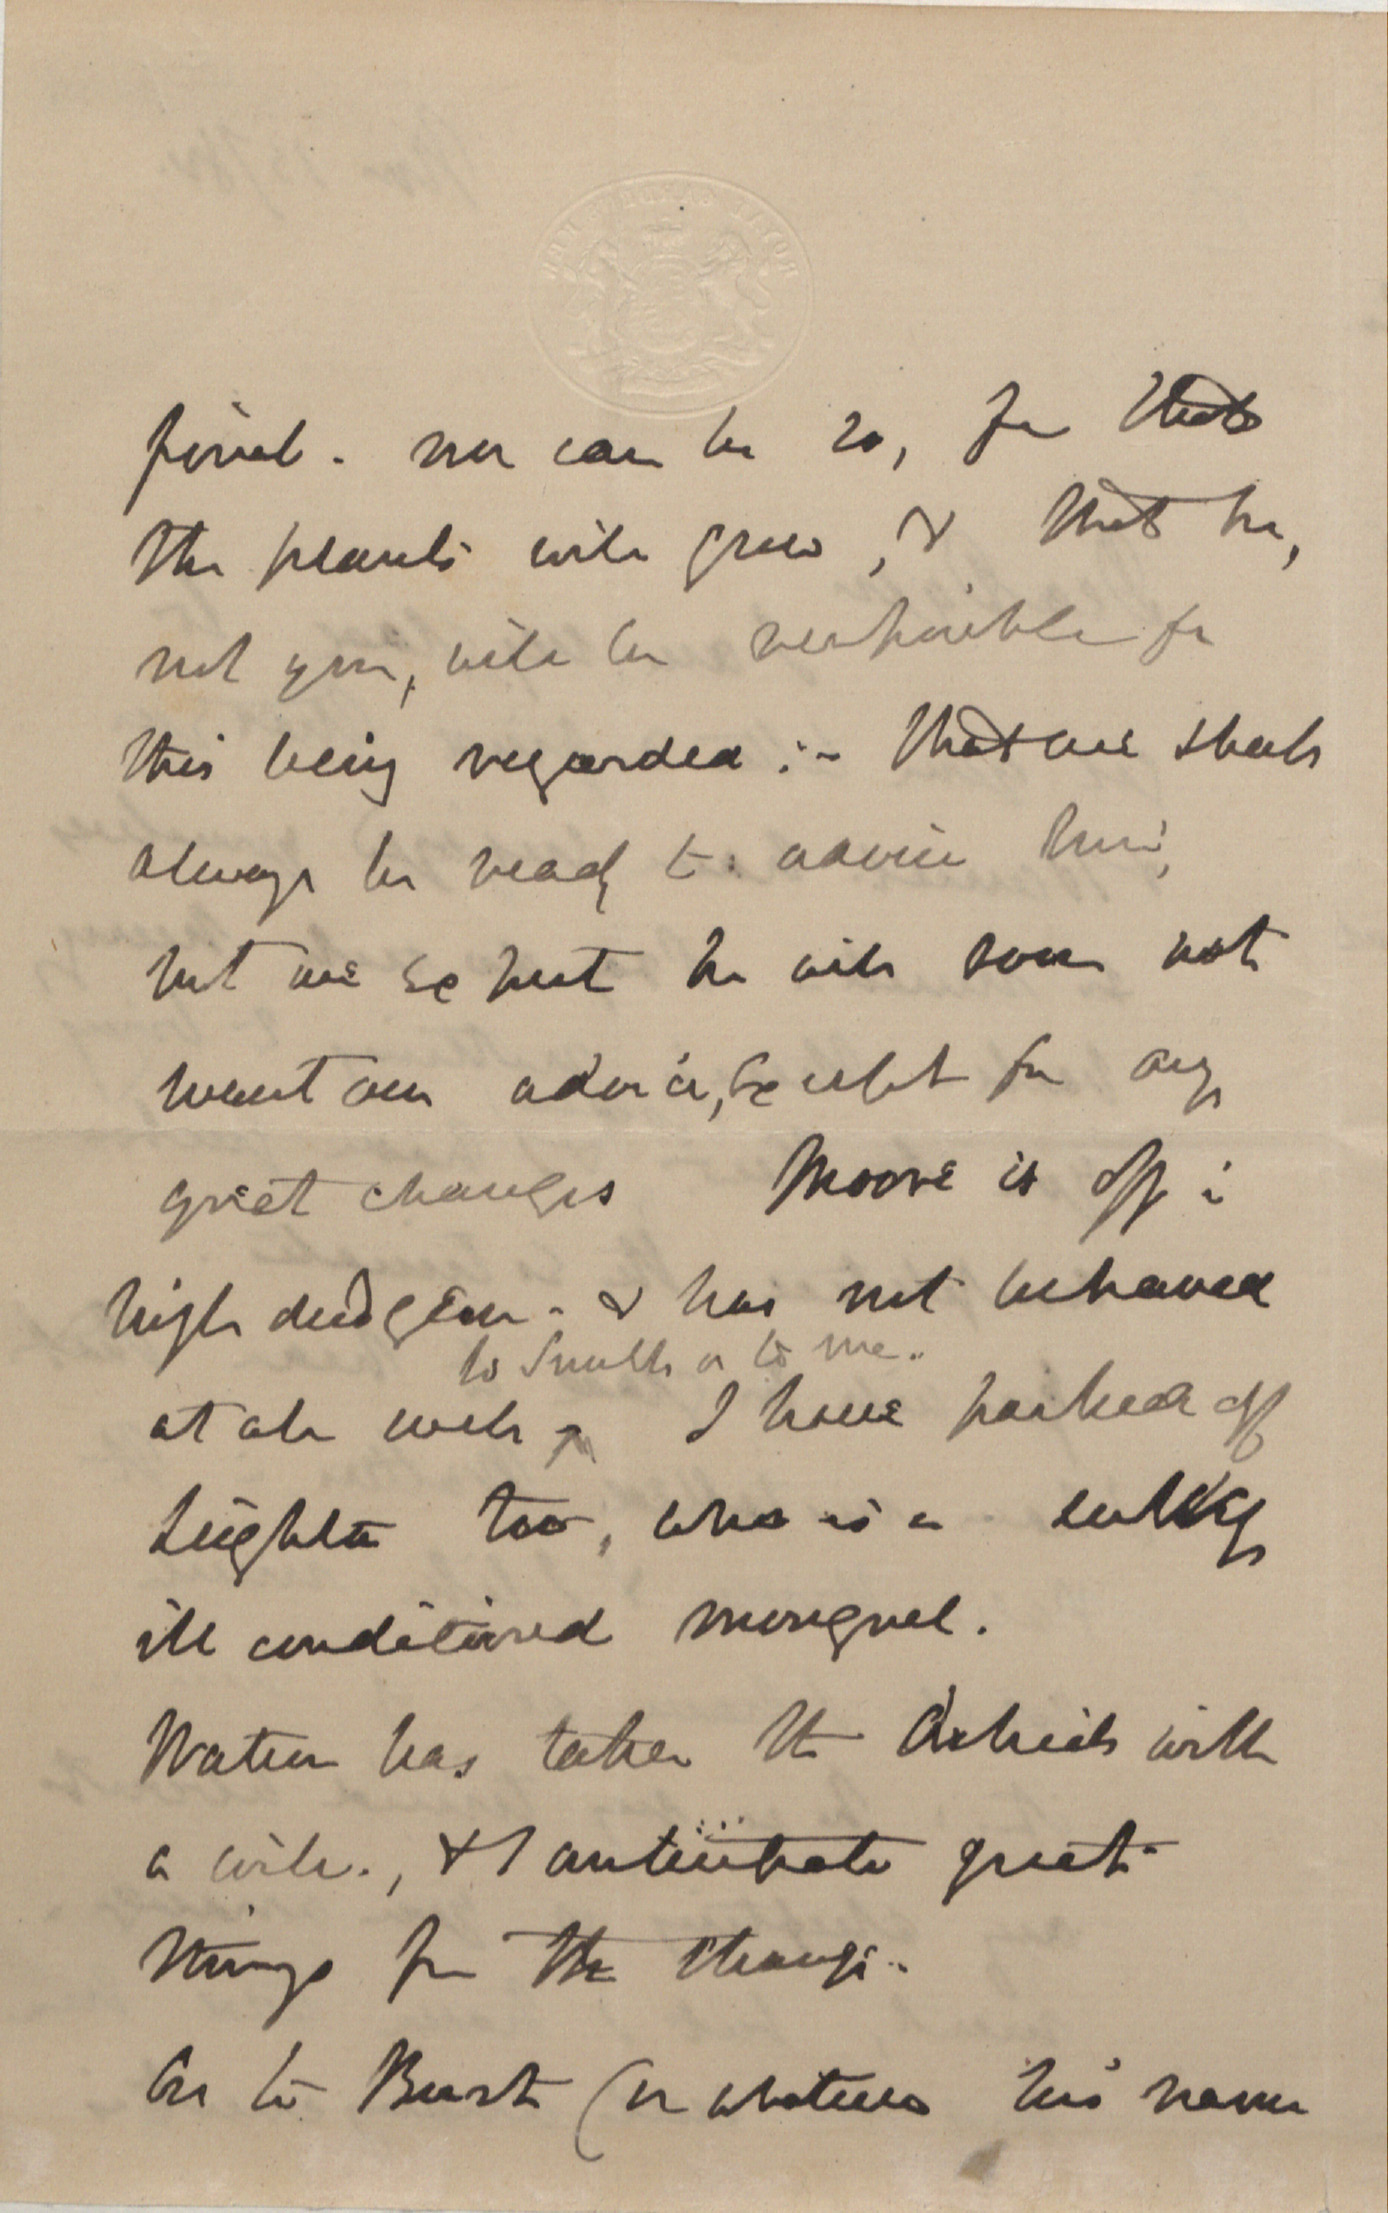 final. nor can be so, for that
the plants will grow, & that he,
not you, will be responsible for
this being regarded :- that we shall
always be ready to advise him,
but we expect he will soon not
want our advice, except for any
great changes Moore is off in
high dudgeon - & has not behaved
to Smith or to me.
at all well I have packed off
too, who is a sulky
ill conditioned mongrel.
Watson has taken the Orchids with
a will., & I anticipate great
things for the change..
As to (or whatever his name